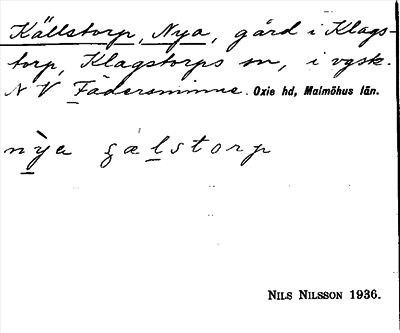 Källstorp, Nya, gård i Klags-
torp, Klagstorps sn, i vgsk.
N V Fädersminne. Oxie hd, Malmöhus län.
nỳa gælstorp
NILS NILSSON 1936.